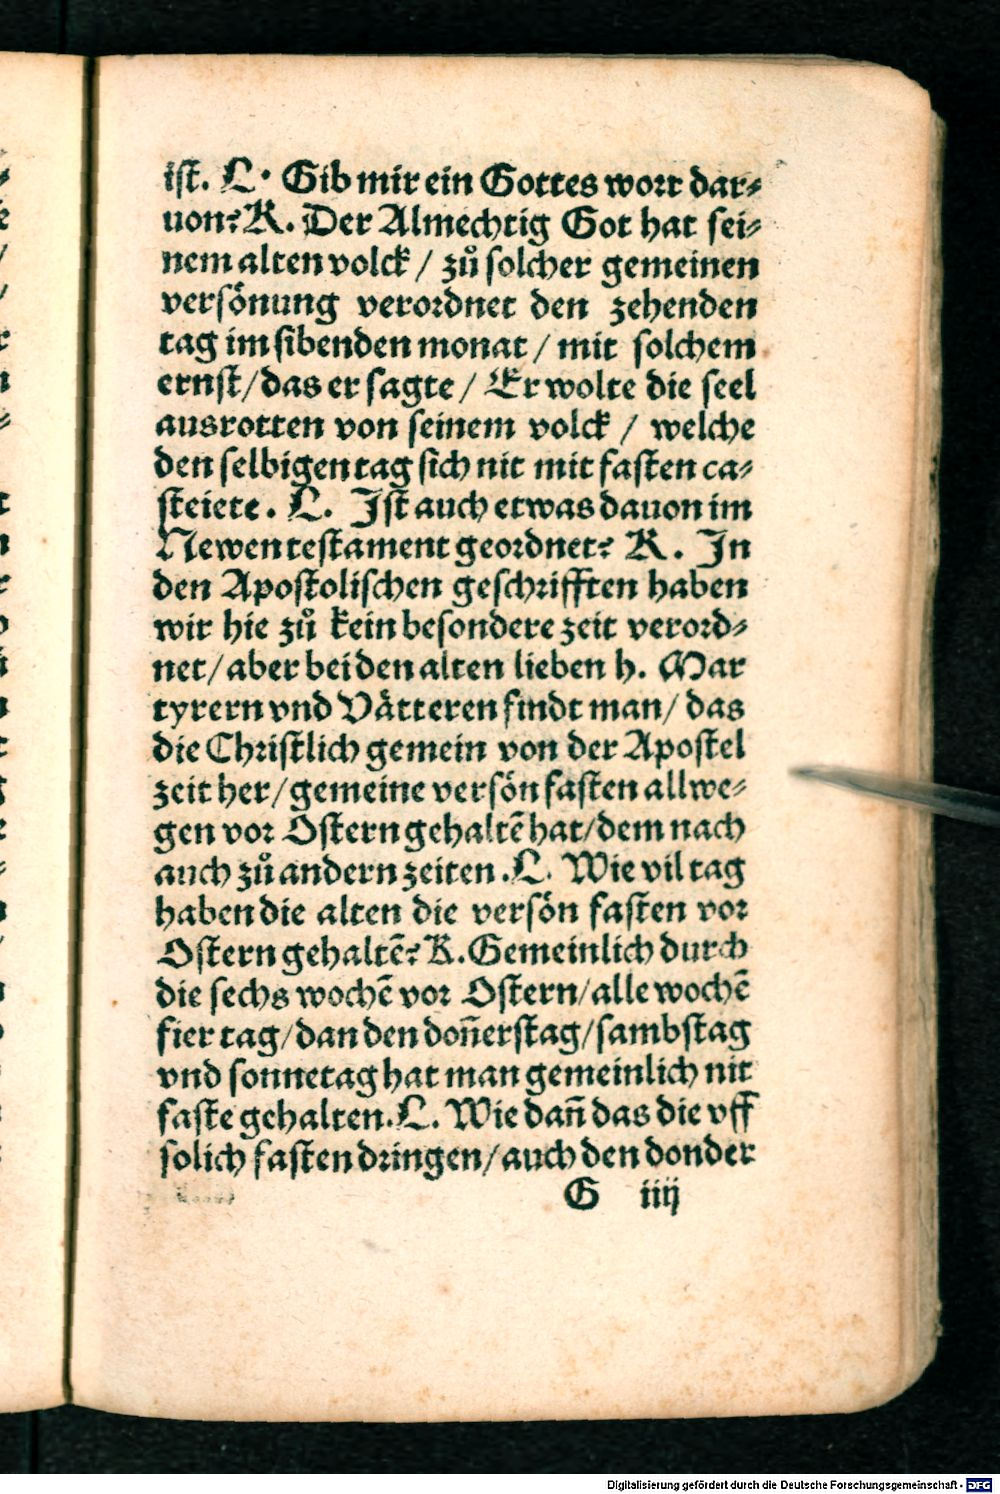 ist. L. Gib mir ein Gottes wort dar⸗
uon? K. Der Almechtig Got hat sei⸗
nem alten volck / zů solcher gemeinen
versönung verordnet den zehenden
tag im sibenden monat / mit solchem
ernst / das er sagte / Er wolte die seel
ausrotten von seinem volck / welche
den selbigen tag sich nit mit fasten ca⸗
steiete. L. Ist auch etwas dauon im
Newen testament geordnet? K. In
den Apostolischen geschrifften haben
wir hie zů kein besondere zeit verord⸗
net / aber bei den alten lieben h. Mar
tyrern vnd Vätteren findt man / das
die Christlich gemein von der Apostel
zeit her / gemeine versön fasten allwe⸗
gen vor Ostern gehaltē hat / dem nach
auch zů andern zeiten. L. Wie vil tag
haben die alten die versön fasten vor
Ostern gehaltē? K. Gemeinlich durch
die sechs wochē vor Ostern / alle wochē
fier tag / dan den don̄erstag / sambstag
vnd sonnetag hat man gemeinlich nit
faste gehalten. L. Wie dan̄ das die vff
solich fasten dringen / auch den donder
G iiij
Digitalisierung gefördert durch die Deutsche Forschungsgemeinschaft - DFG